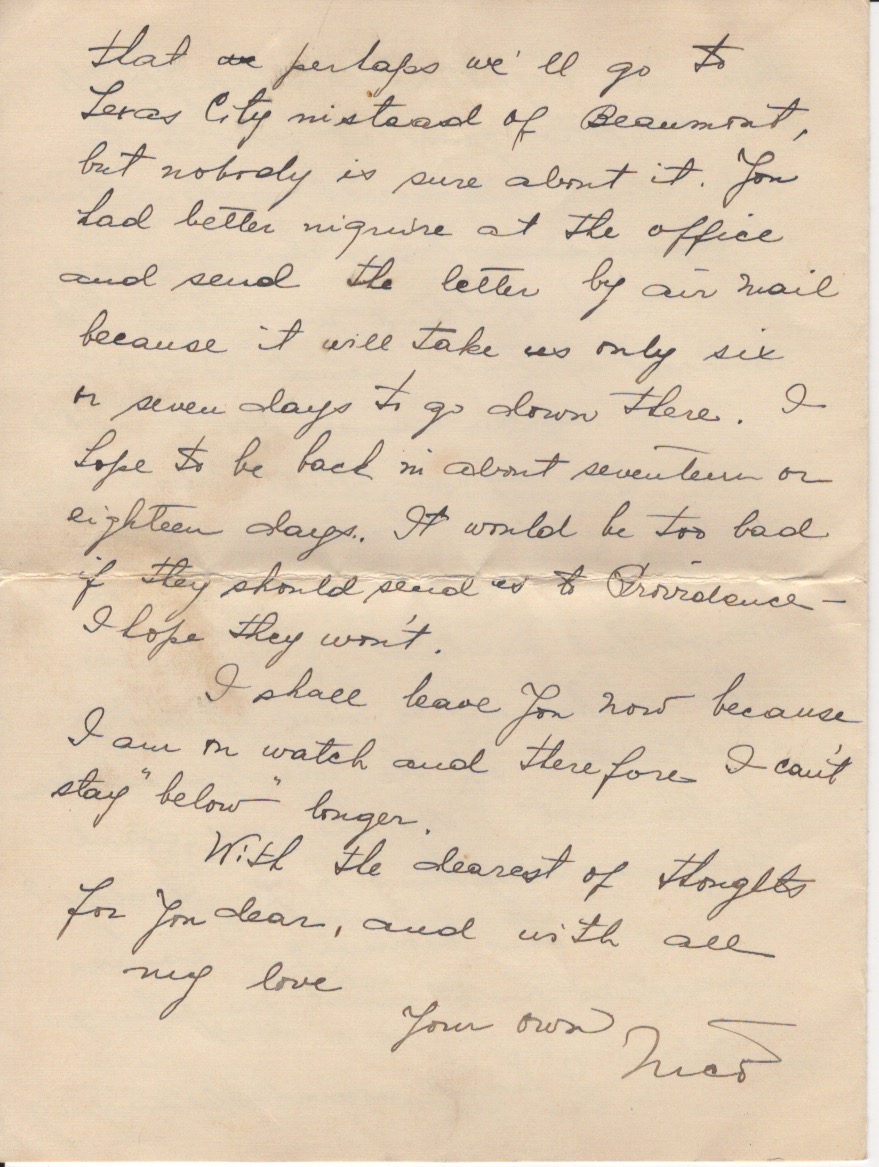 that we perhaps we'll go to
Texas City instead of Beaumont,
but nobody is sure about it. You
had better inquire at the office
and send the letter by air mail
because it will take us only six
or seven days to go down there. I
hope to be back in about seventeen or
eighteen days. It would be too bad
if they should send us to Providence -
I hope they won't.
I shall leave You now because
I am on watch and therefore I can't
stay "below" longer.
With the dearest of thoughts
for You dear, and with all
my love
Your own
Nico